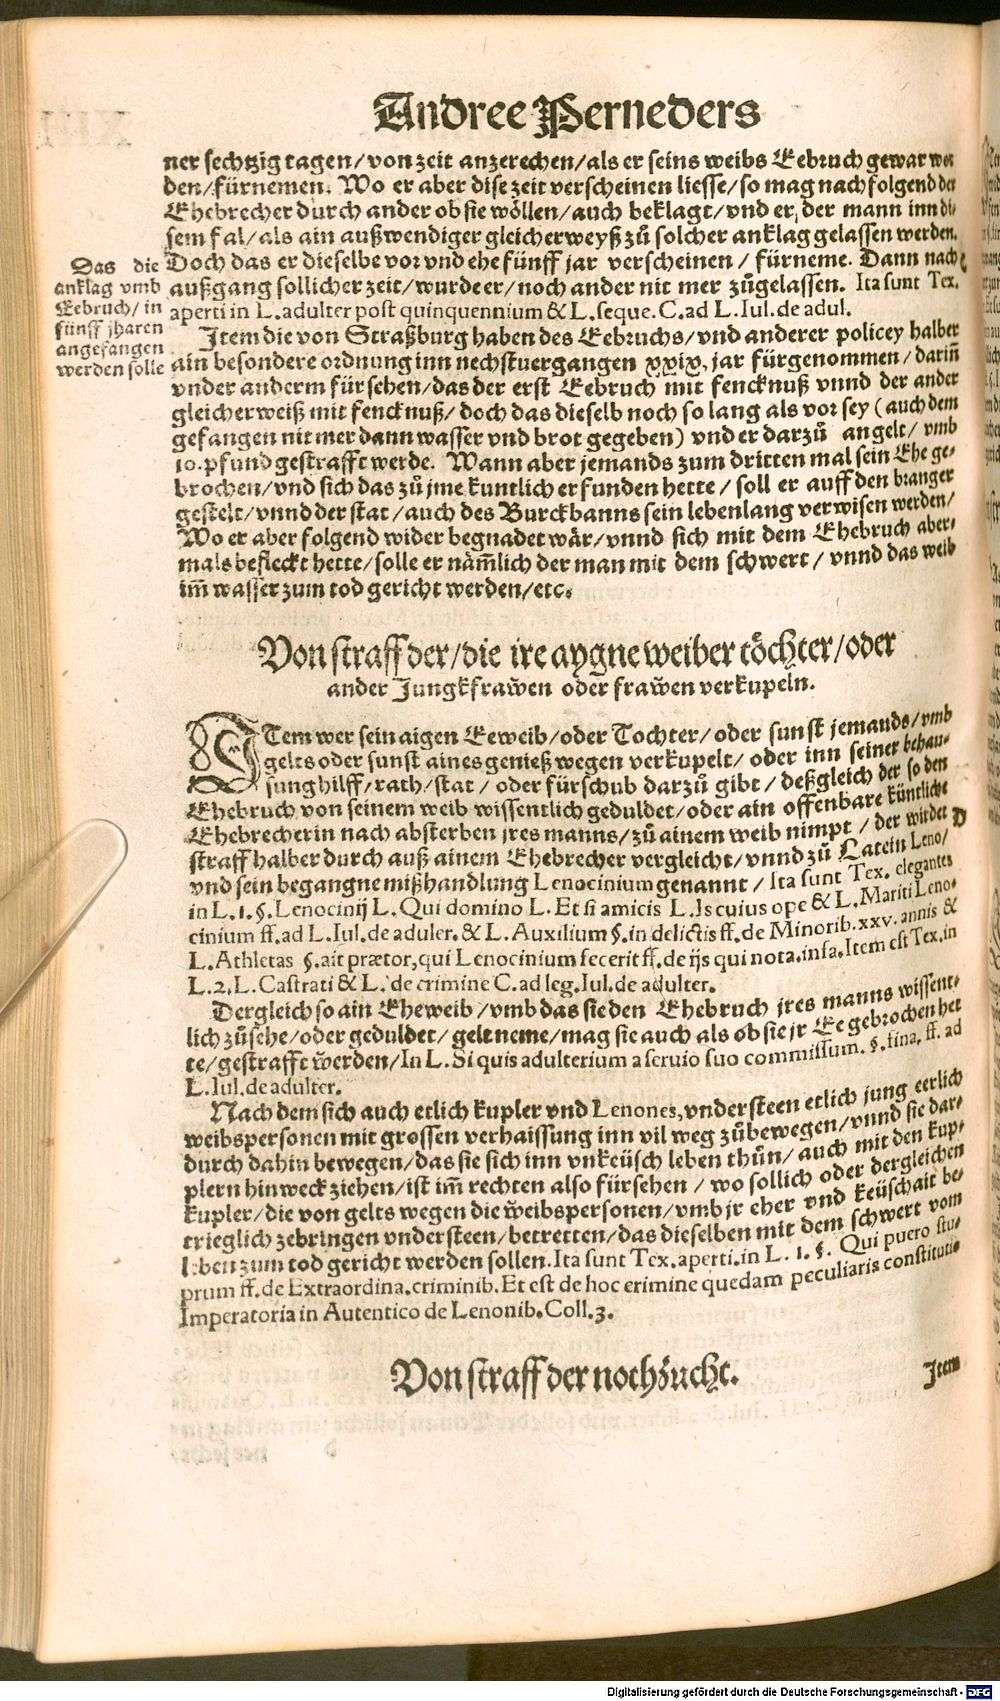 Andree Perneders
ner sechtzig tagen/von zeit anzerechen/als er seins weibs Eebruch gewar wor
den/fürnemen. Wo er aber dise zeit verscheinen liesse/so mag nachfolgend der
Ehebrecher durch ander ob sie wöllen/auch beklagt/vnd er, der mann inn di-
sem fal/als ain außwendiger gleicherweyß zů solcher anklag gelassen werden.
Doch das er dieselbe vor vnd ehe fünff jar verscheinen/ fürneme. Dann nach C
außgang sollicher zeit/wurde er/noch ander nit mer zůgelassen. Ita sunt Tex.
aperti in L. adulter post quinquennium & L. seque. C. ad L. Iul. de adul.
Das die
anklag vmb
Eebruch/ in
fünff jharen
angefangen
werden solle
Item die von Straßburg haben des Eebruchs/vnd anderer policey halber
ain besondere ordnung inn nechstuergangen xxix. jar fürgenommen/darin̄
vnder anderm fürsehen/das der erst Eebruch mit fencknuß vnnd der ander
gleicherweiß mit fencknuß/ doch das dieselb noch so lang als vor sey (auch dem
gefangen nit mer dann wasser vnd brot gegeben) vnd er darzů angelt/ vmb
10. pfund gestrafft werde. Wann aber jemands zum dritten mal sein Ehe ge-
brochen/vnd sich das zů jme kuntlich erfunden hette/ soll er auff den branger
gestelt/vnnd der stat/auch des Burckbanns sein lebenlang verwisen werden/
Wo er aber folgend wider begnadet wår/vnnd sich mit dem Ehebruch aber-
mals befleckt hette/solle er nåm̄lich der man mit dem schwert/ vnnd das weib
im̄ wasser zum tod gericht werden/etc.
Von straff der/die ire aygne weiber töchter/oder
ander Jungkfrawen oder frawen verkupeln.
ITem wer sein aigen Eeweib/oder Tochter/oder sunst jemands/vmb
gelts oder sunst aines genieß wegen verkupelt/ oder inn seiner behau-
sung hilff/rath/stat/ oder fürschub darzů gibt/ deßgleich der so den
Ehebruch von seinem weib wissentlich geduldet/oder ain offenbare küntliche
Ehebrecherin nach absterben jres manns/zů ainem weib nimpt/ der wirdet D
straff halber durch auß ainem Ehebrecher vergleicht/vnnd zů Latein Leno/
vnd sein begangne mißhandlung Lenocinium genannt/ Ita sunt Tex. elegantes
in L. 1. §. Lenocinij L. Qui domino L. Et si amicis L. Is cuius ope & L. Mariti Leno-
cinium ff. ad L. Iul. de aduler. & L. Auxilium §. in delictis ff. de Minorib. xxv. annis &
L. Athletas §. ait prætor, qui Lenocinium fecerit ff. de ijs qui nota. infa. Item est Tex. in
L. 2. L. Castrati & L. de crimine C. ad leg. Iul. de adulter.
Dergleich so ain Eheweib/vmb das sie den Ehebruch jres manns wissent-
lich zůsehe/oder geduldet/ gelt neme/mag sie auch als ob sie jr Ee gebrochen het
te/gestrafft werden/In L. Si quis adulterium a seruio suo commissum. §. fina. ff. ad
L. Iul. de adulter.
Nach dem sich auch etlich kupler vnd Lenones, vndersteen etlich jung eerlich
weibspersonen mit grossen verhaissung inn vil weg zůbewegen/vnnd sie dar-
durch dahin bewegen/das sie sich inn vnkeüsch leben thůn/ auch mit den kup-
plern hinweck ziehen/ist im̄ rechten also fürsehen/ wo sollich oder dergleichen
kupler/die von gelts wegen die weibspersonen/vmb jr eher vnd keüschait be-
trieglich zebringen vndersteen/betretten/das dieselben mit dem schwert vom
leben zum tod gericht werden sollen. Ita sunt Tex. aperti. in L. 1. §. Qui puero stu-
prum ff. de Extraordina. criminib. Et est de hoc erimine quedam peculiaris constitutio
Imperatoria in Autentico de Lenonib. Coll. 3.
Von straff der nothzucht.
Item
Digitalisierung gefördert durch die Deutsche Forschungsgemeinschaft - DFG